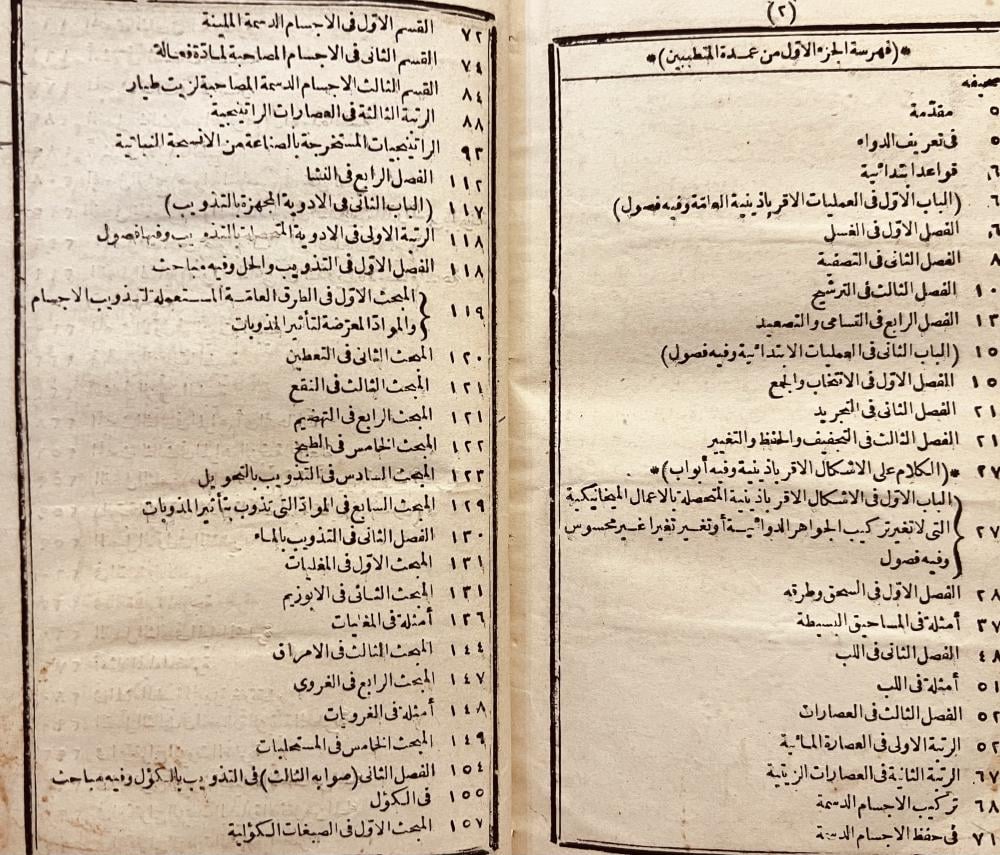 (٢)
*(فهرسة الجزء الاول من عمدة المتطببين)*
صحيفه
٥ مقدّمة
٥ فى تعريف الدواء
٦ قواعد ابتدائية
٦ (الباب الاول فى العمليات الاقرباذينية العامة وفيه فصول)
٦ الفصل الاول فى الغسل
٨ الفصل الثانى فى التصفية
١٠ الفصل الثالث فى الترشيح
١٣ الفصل الرابع فى التسامى والتصعيد
١٥ (الباب الثانى فى العمليات الابتدائية وفيه فصول)
١٥ الفصل الاول فى الانتخاب والجمع
٢١ الفصل الثانى فى التجريد
٢١ الفصل الثالث فى التجفيف والحفظ والتغيير
٢٧ *(الكلام على الاشكال الاقرباذينية وفيه أبواب)*
الباب الاول فى الاشكال الاقرباذينية المتحصلة بالاعمال الميخانيكية
٢٧ التى لا تغير تركيب الجواهر الدوائية أو تغير تغيرا غير محسوس
وفيه فصول
٢٨ الفصل الاول فى السحق وطرقه
٣٧ أمثلة فى المساحيق البسيطة
٤٨ الفصل الثانى فى اللب
٥١ أمثلة فى اللب
٥٢ الفصل الثالث فى العصارات
٥٢ الرتبة الاولى فى العصارة المائية
٦٧ الرتبة الثانية فى العصارات الزيتية
٦٨ تركيب الاجسام الدسمة
٧١ فى حفظ الاجسام الدسمة
٧٢ القسم الاول فى الاجسام الدسمة الملينة
٧٤ القسم الثانى فى الاجسام المصاحبة لمادّة فعالة
٨٤ القسم الثالث الاجسام الدسمة المصاحبة لزيت طيار
٨٨ الرتبة الثالثة فى العصارات الراتينجية
٩٣ الراتينجيات المستخرجة بالصناعة من الانسجة النباتية
١١٢ الفصل الرابع فى النشا
١١٧ (الباب الثانى فى الادوية المجهزة بالتذويب)
١١٨ الرتبة الاولى فى الادوية المتحصلة بالتذويب وفيها فصول
١١٨ الفصل الاول فى التذويب والحل وفيه مباحث
١١٩ المبحث الاول فى الطرق العامة المستعملة لتذويب الاجسام
والموادّ المعرّضة لتأثير المذوبات
١٢٠ المبحث الثانى فى التعطين
١٢١ المبحث الثالث فى النقع
١٢١ المبحث الرابع فى التهضيم
١٢٢ المبحث الخامس فى الطبخ
١٢٣ المبحث السادس فى التذويب بالتحويل
١٢٩ المبحث السابع فى الموادّ التى تذوب بتأثير المذوبات
١٣٠ الفصل الثانى فى التذويب بالماء
١٣١ المبحث الاول فى المغليات
١٣١ المبحث الثانى فى الابوزيم
١٣٦ أمثلة فى المغليات
١٤٤ المبحث الثالث فى الامراق
١٤٧ المبحث الرابع فى الغروى
١٤٨ أمثلة فى الغرويات
١٤٩ المبحث الخامس فى المستحلبات
١٥٤ الفصل الثانى (صوابه الثالث) فى التذويب بالكؤل وفيه مباحث
١٥٥ فى الكؤل
١٥٧ المبحث الاول فى الصبغات الكؤلية